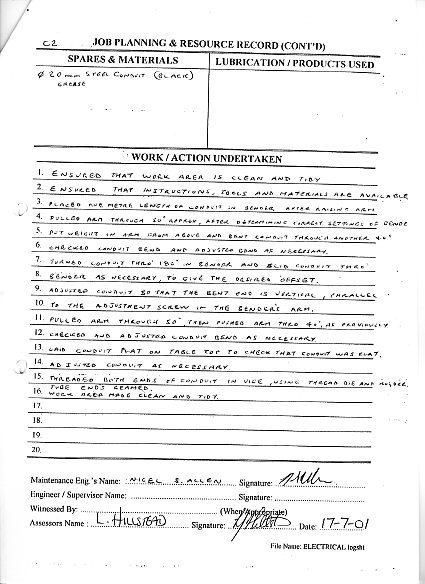 C2 JOB PLANNING & RESOURCE RECORD (CONT'D)
SPARES & MATERIALS LUBRICATION / PRODUCTS USED
Ø 20 mm STEEL CONDUIT (BLACK)
GREASE
WORK / ACTION UNDERTAKEN
1. ENSURED THAT WORK AREA IS CLEAN AND TIDY
2. ENSURED THAT INSTRUCTIONS, TOOLS AND MATERIALS ARE AVAILABLE
3. PLACED ONE METRE LENGTH OF CONDUIT IN BENDER, AFTER RAISING ARM
4. PULLED ARM THROUGH 50° APPROX, AFTER DETERMINING CORRECT SETTINGS OF BENDE
5. PUT WEIGHT IN ARM FROM ABOVE AND BENT CONDUIT THROUGH ANOTHER 40°
6. CHECKED CONDUIT BEND AND ADJUSTED BEND AS NECESSARY.
7. TURNED CONDUIT THRO' 180° IN BENDER AND SLID CONDUIT THRO'
8. BENDER AS NECESSARY, TO GIVE THE DESIRED 'OFFSET'.
9. ADJUSTED CONDUIT SO THAT THE BENT END IS VERTICAL, PARALLEL
10. TO THE ADJUSTMENT SCREW IN THE BENDER'S ARM.
11. PULLED ARM THROUGH 50°, THEN PUSHED ARM THRO 40°, AS PREVIOUSLY
12. CHECKED AND ADJUSTED CONDUIT BEND AS NECESSARY.
13. LAID CONDUIT FLAT ON TABLE TOP TO CHECK THAT CONDUIT WAS FLAT.
14. ADJUSTED CONDUIT AS NECESSARY.
15. THREADED BOTH ENDS OF CONDUIT IN VICE, USING THREAD DIE AND HOLDER.
TUBE ENDS REAMED.
16. WORK AREA MADE CLEAN AND TIDY.
17.
18.
19.
20.
Maintenance Eng.'s Name: NIGEL S. ALLEN Signature:
Engineer / Supervisor Name: Signature:
Witnessed By: (When Appropriate)
Assessors Name: L. HILLSTEAD Signature: Date: 17-7-01
File Name: ELECTRICAL logsht